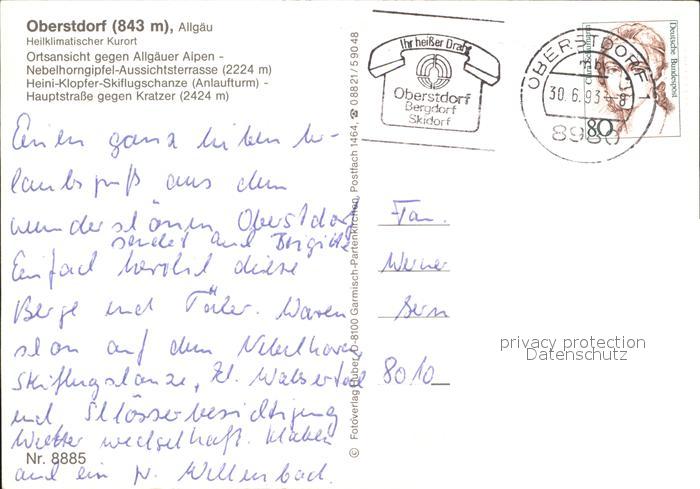 Oberstdorf (843 m), Allgäu
Heilklimatischer Kurort
Ortsansicht gegen Allgäuer Alpen -
Nebelhorngipfel-Aussichtsterrasse (2224 m)
Heini-Klopfer-Skiflugschanze (Anlaufturm) -
Hauptstraße gegen Kratzer (2424 m)
Einen ganz lieben Ur-
laubsgruß aus dem
wunderschönen Oberstdorf
sendet auch Brigitte
Einfach herrlich diese
Berge und Täler. Waren
schon auf dem Nebelhorn,
Skiflugschanze, Kl. Walsertal
und Schlösserbesichtigung
Wetter wechselhaft.
und ein Wellenbad.
Nr. 8885
© Fotoverlag Huber, D-8100 Garmisch-Partenkirchen, Postfach 1464, ☎ 08821/59048
Ihr heißer Draht
Oberstdorf
Bergdorf
Skidorf
OBERSTDORF 1
30.6.93-8
8980
Deutsche Bundespost
80
Fam.
Werner
8010
privacy protection
Datenschutz